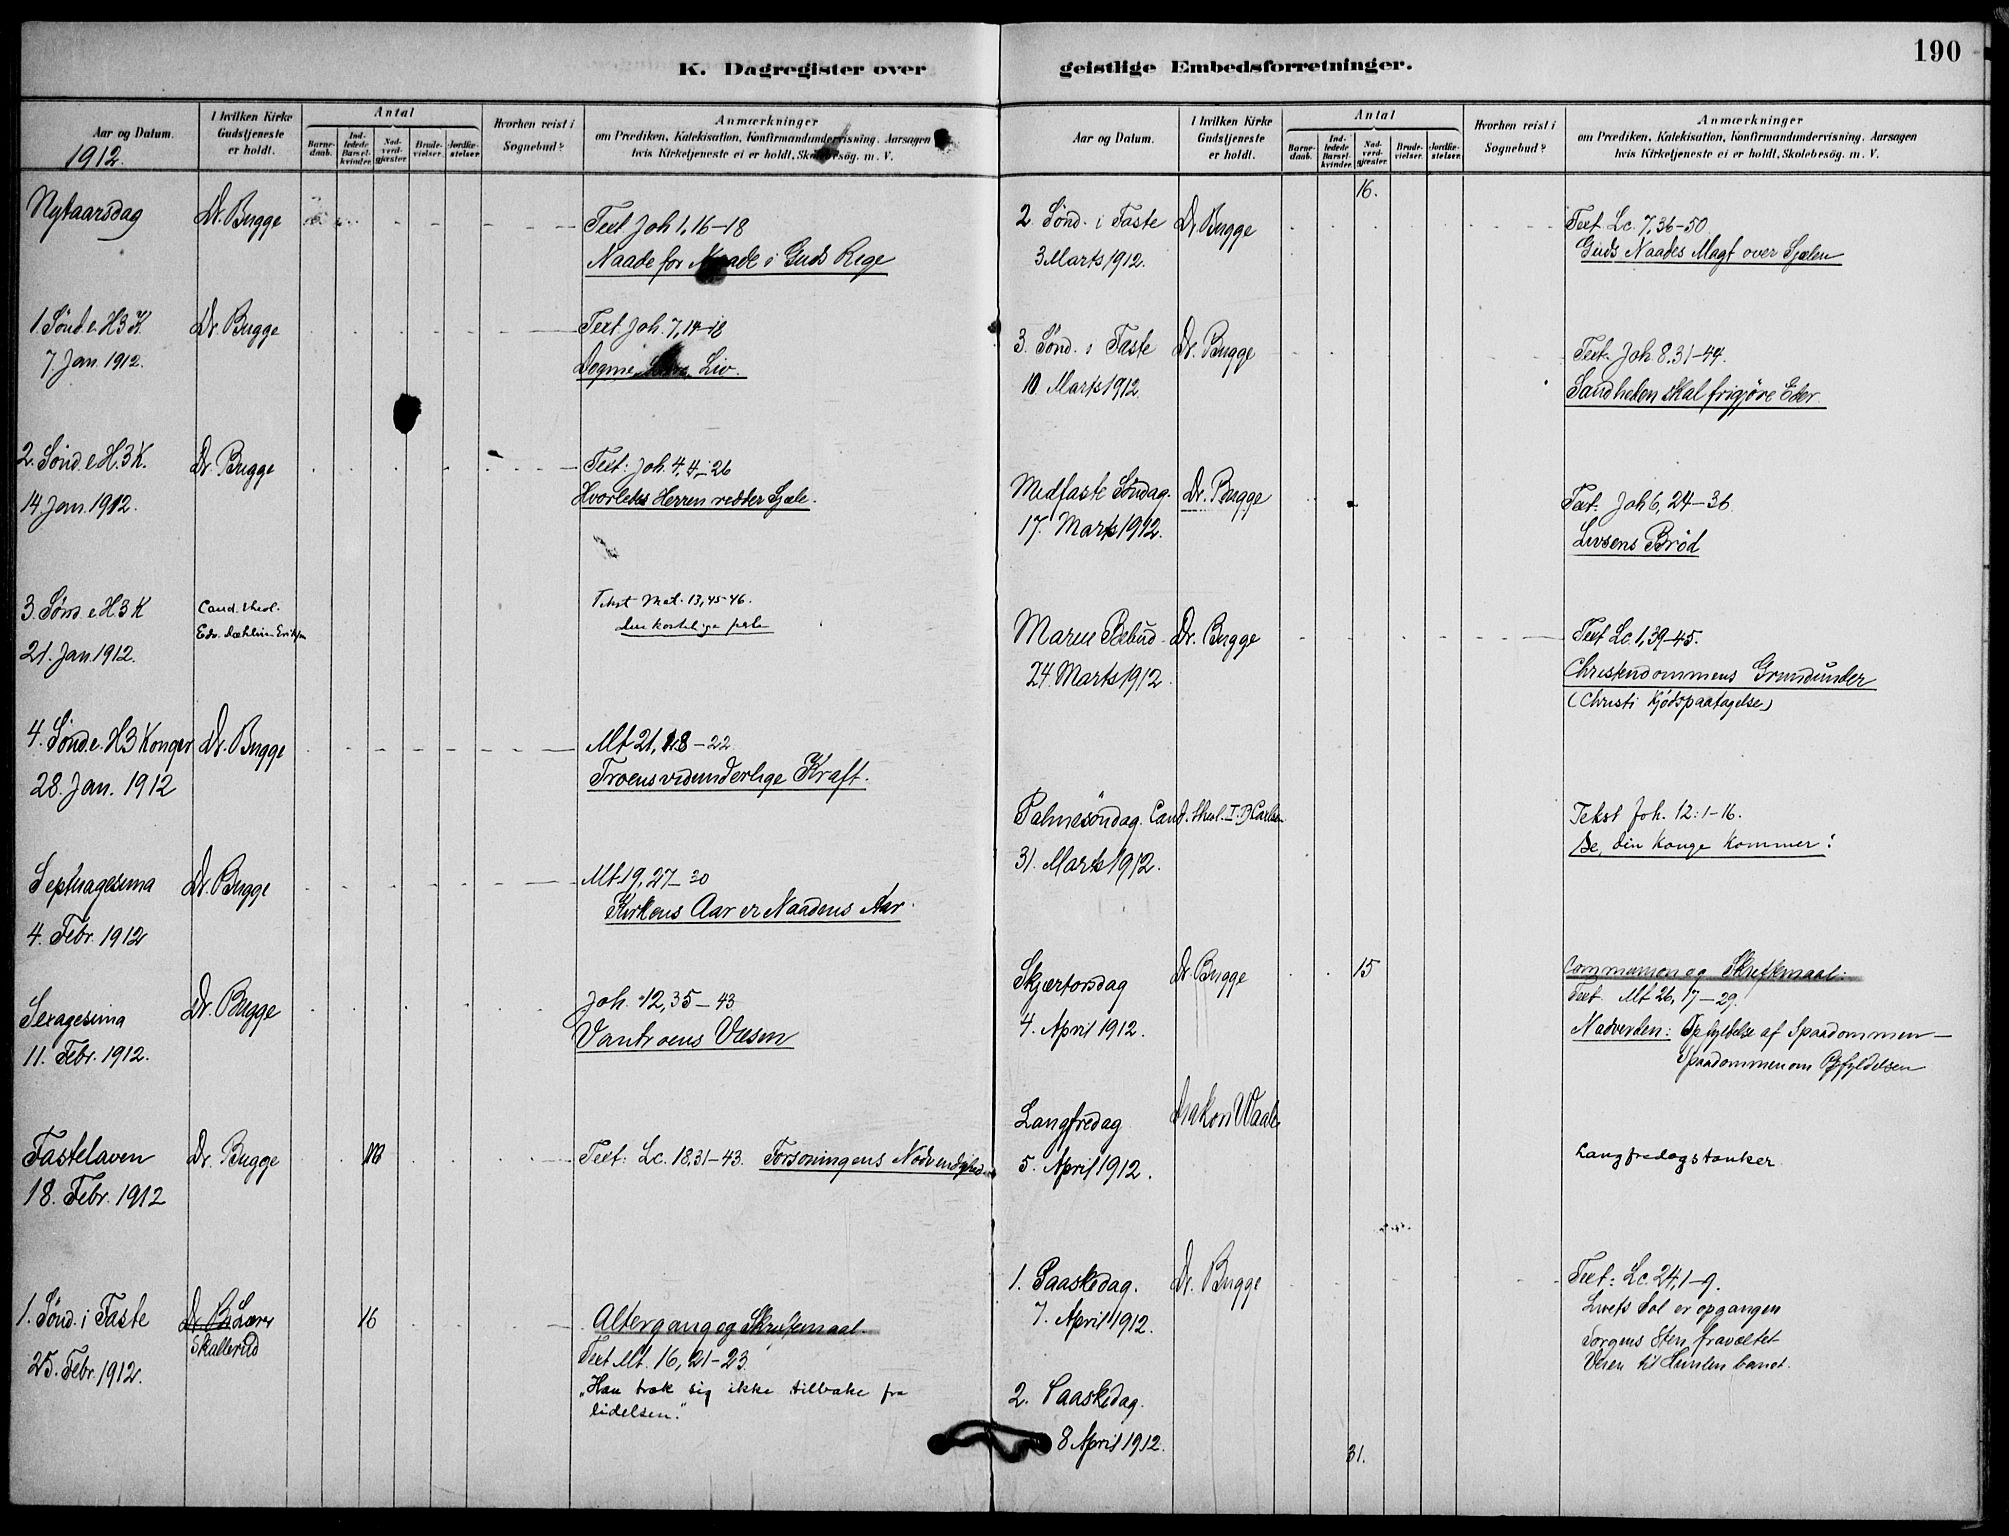 190
K. Dagregister over geistlige Embedsforretninger.
Aar og Datum.
1912.
I hvilken Kirke Gudstjeneste er holdt.
Antal
Barnedaab.
Indledede Barselkvinder.
Nadverdgjæster.
Brudevielser.
Jordfæstelser.
Hvorhen reist i Sognebud?
Anmærkninger
om Prædiken, Katekisation, Konfirmandundervisning. Aarsagen
hvis Kirketjeneste ei er holdt, Skolebesög. m. V.
Nytaarsdag
Dr. Bugge
Text Joh 1, 16-18
Naade for Naade i Guds Rige
1. Sønd. e. H3K
7. Jan. 1912.
Dr. Bugge
Text. Joh. 7, 14-18
Dogme Liv.
2. Sønd. e. H. 3K.
14. Jan. 1912.
Dr. Bugge
Text: Joh. 4, 4-26
Hvorledes Herren redder Sjæle.
3. Sønd e. H. 3 K
21. Jan 1912.
Cand. theol.
Tekst Mat. 13, 45-46.
den kostelige perle
4. Sønd. e. H3 Konger
28. Jan. 1912
Dr. Bugge
Mt 21, 18-22
Troens vidunderlige Kraft.
Septuagesima
4. Febr. 1912
Dr. Bugge
Mt. 19, 27-30
Kirkens Aar er Naadens Aar.
Sexagesima
11. Febr. 1912.
Dr. Bugge
Joh. 12, 35-43
Vantroens Væsen
Fastelaven
18. Febr. 1912
Dr. Bugge
Text: Lc. 18, 31-43. Forsoningens Nødvendighed
1. Sønd. i Faste
25. Febr. 1912.
Dr. B. Lærer
Skallerud
16
Altergang og Skriftemaal.
Text Mt. 16, 21-23.
"Han trak sig ikke tilbake fra
lidelsen."
Aar og Datum.
I hvilken Kirke Gudstjeneste er holdt.
Antal
Barnedaab.
Indledede Barselkvinder.
Nadverdgjæster.
Brudevielser.
Jordfæstelser.
Hvorhen reist i Sognebud?
Anmærkninger
om Prædiken, Katekisation, Konfirmandundervisning. Aarsagen
hvis Kirketjeneste ei er holdt, Skolebesög. m. V.
16.
2. Sønd. i Faste
3 Marts 1912.
Dr. Bugge
Text Lc. 7, 36-50.
Guds Naades Magt over Sjælen
3. Sønd. i Faste
10 Marts 1912
Dr. Bugge
Text. Joh. 8. 31-44.
Sandheden skal frigjøre Eder.
Midfaste Søndag.
17. Marts 1912.
Dr. Bugge
Text: Joh 6, 24-36.
Livsens Brød
Mariæ Bebud.
24. Marts 1912.
Dr. Bugge
Text Lc. 1, 39-45.
Christendommens Grundunder
(Christi Kjødspaatagelse)
Palmesöndag.
31. Marts 1912.
Cand. theol. I. D. Carlsen
Tekst Joh. 12: 1-16.
Se, din konge kommer!
Skjærtorsdag
4. April 1912.
Dr. Bugge
15
Communion og Skriftemaal.
Text. Mt 26, 17-29.
Nadverden: Opfyldelse af Spaadommen—
Spaadommen om Opfyldelsen
Langfredag
5. April 1912.
Diakon Waaler
Langfredagstanker
1. Paaskedag.
7. April 1912.
Dr. Bugge
Text: Lc. 24, 1-9.
Livets Sol er opgangen
Sorgens Sten fravæltet
Veien til Himlen banet.
2. Paaskedag.
8 April 1912.
31.